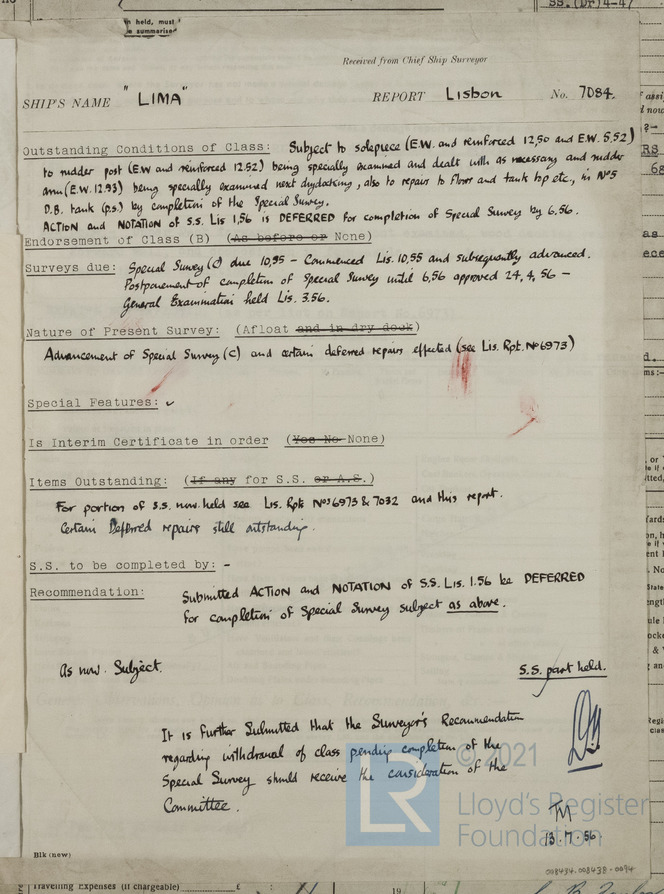 SS. (Dr) 4-47
n held, must
be summarised
Received from Chief Ship Surveyor
SHIP'S NAME "LIMA" REPORT Lisbon No. 7084.
Outstanding Conditions of Class: Subject to solepiece (E.W. and reinforced 12,50 and E.W. 5,52)
to rudder post (E.W and reinforced 12.52) being specially examined and dealt with as necessary and rudder
arm (E.W. 12.53) being specially examined next drydocking, also to repairs to floors and tank top etc., in No 5
D.B. tank (p.s.) by completion of the Special Survey.
ACTION and NOTATION of S.S. Lis 1,56 is DEFERRED for completion of Special Survey by 6.56.
Endorsement of Class (B) (As before or None)
Surveys due: Special Survey (C) due 10,55 - Commenced Lis. 10,55 and subsequently advanced.
Postponement of completion of Special Survey until 6,56 approved 24.4.56 -
General Examination held Lis. 3.56.
Nature of Present Survey: (Afloat and in dry dock)
Advancement of Special Survey (C) and certain deferred repairs effected (see Lis. Rpt. No 6973)
Special Features: ✓
Is Interim Certificate in order (Yes No None)
Items Outstanding: (If any for S.S. or A.S.)
For portion of S.S. now held see Lis. Rpts Nos 6973 & 7032 and this report.
Certain Deferred repairs still outstanding.
S.S. to be completed by: -
Recommendation: Submitted ACTION and NOTATION of S.S. Lis. 1.56 be DEFERRED
for completion of Special Survey subject as above.
As now. Subject. S.S. part held.
It is Further Submitted that the Surveyor's Recommendation
regarding withdrawal of class pending completion of the
Special Survey should receive the consideration of the
Committee.
© 2021
LR
Lloyd's Register
Foundation
13.7.56
Blk (new)
008434.008438-0094
Travelling Expenses (if chargeable) £ 19